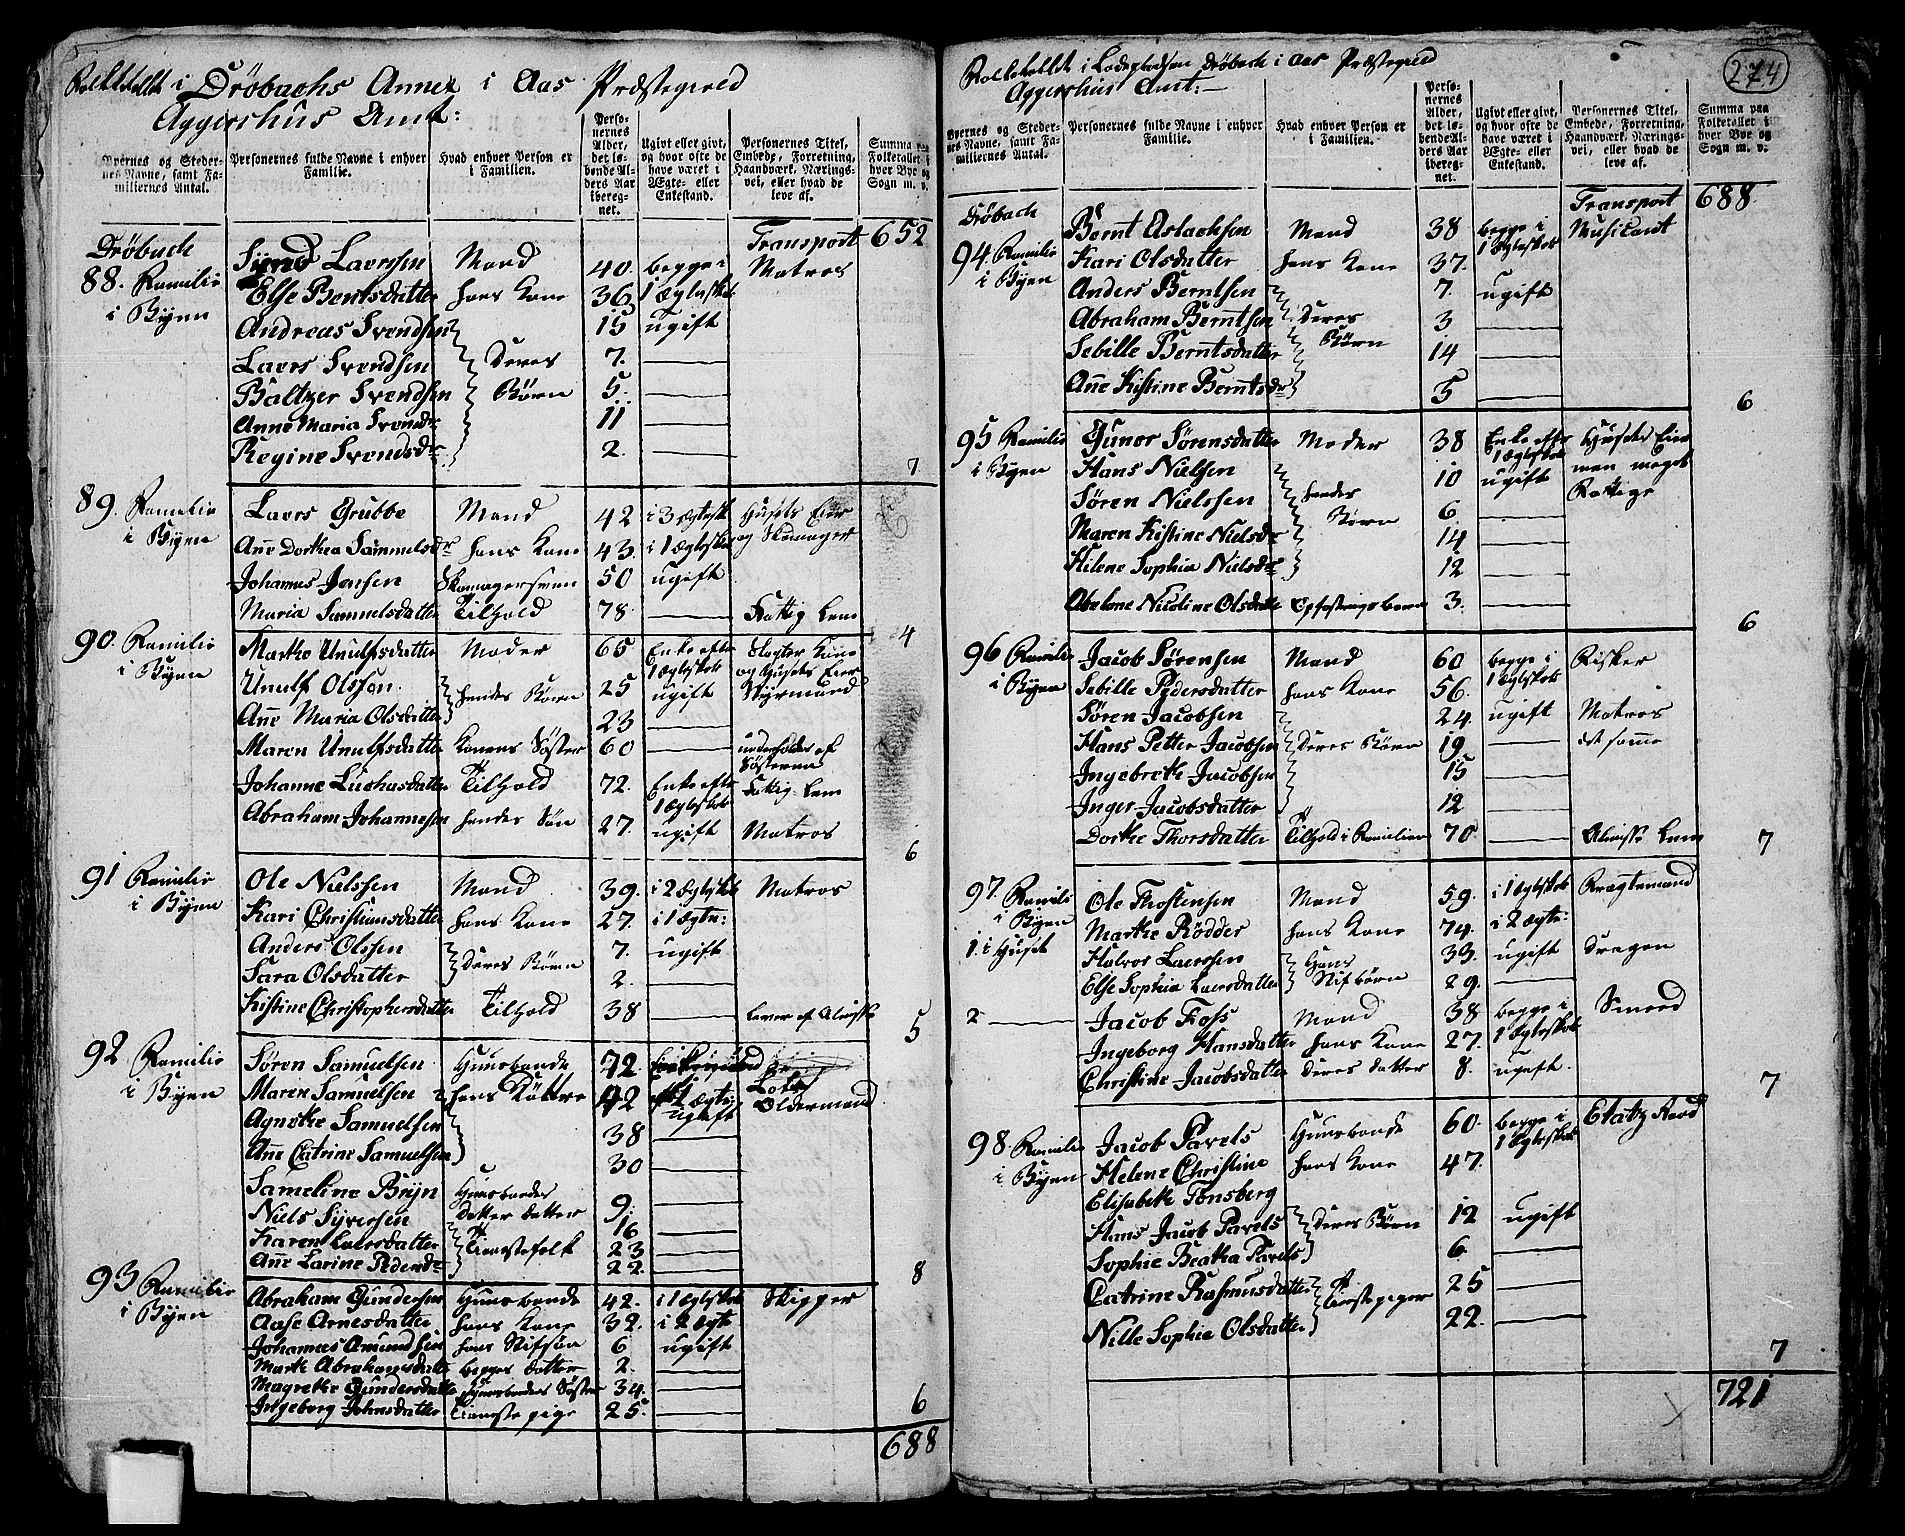 Folketellet i Drøbachs Annex i Aas Præstegield
Aggershus Amt:
Byernes og Stedernes Navne, samt Familiernes Antal. | Personernes fulde Navne i enhver Familie. | Hvad enhver Person er i Familien. | Personernes Alder, det løbende Alders Aar iberegnet. | Ugivt eller givt, og hvor ofte de have været i Ægte- eller Enkestand. | Personernes Titel, Embede, Forretning, Haandværk, Næringsvei, eller hvad de leve af. | Summa paa Folketallet i hver Bye og Sogn m. v.
Transport 652
Drøbach
88. Familie i Byen
Svend Laersen Mand 40. begge i 1 Ægteskab Matros
Else Berntsdatter hans Kone 36
Andreas Svendsen 15 ugift
Laers Svendsen Deres Børn 7. —
Baltzer Svendsen 5. —
Anne Maria Svendsdr 11 —
Regine Svendsdr 2. — 7
89. Familie i Byen
Laers Grubbe Mand 42 i 3 Ægtesk Husets Eier og Skomager
Anne Dorthea Sammelsdr hans Kone 43. i 1 Ægteskab
Johannes Jensen Skomagersvenn 50 ugift
Maria Sammelsdatter Tilhold 78. — Fattig Lem 4
90. Familie i Byen
Marthe Unulfsdatter Moder 65 Enke efter 1 Ægteskab og Husets Eier
Unulf Olsson hendes Børn 25 ugift Styrmand
Anne Maria Olsdatter 23 —
Maren Unulfsdatter Konens Søster 60 — underholdes af Søsteren
Johanne datter Tilhold 72. Enke efter 1 Ægteskab Fattig Lem
Abraham Johannesen hendes Søn 27. ugift Matros 6
91 Familie i Byen
Ole Nielssen Mand 39. i 2 Ægteskab Matros
Kari Christiansdatter hans Kone 27. i 1 Ægte:
Anders Olssen Deres Børn 7. ugift
Sara Olsdatter 2. —
Kistine Christophersdatter Tilhold 38 — Lever af Almisse 5
92 Familie i Byen
Søren Samuelsen Huusbonde 72. Enkemand Lods Oldermand
Maren Samuelsen hans Døttre 42 ugift
Agnethe Samuelsen 38 —
Anne Catrine Samuelsen 30 —
Sameline Bryn Huusbondes Datter Datter 9. —
Niels Syversen Tienestefolk 16 —
Karen Laersdatter 23 —
Anne Larine Pedersdr 22. — 8
93 Familie i Byen
Abraham Gundersen Huusbonde 42. i 1 Ægteskab Skipper
Aase Arnesdatter hans Kone 32. i 2 Ægt
Johannes Amundsen hans Stifsøn 6 ugift
Marte Abrahamsdatter begges Datter 2. —
Magrethe Gundersdatter Huusbondes Søster 34. —
Ingeborg Johnsdatter Tieneste pige 25. — 6
688
274
Folketellet i Ladestedsen Drøbach i Aas Præstegield
Aggershus Amt:
Byernes og Stedernes Navne, samt Familiernes Antal. | Personernes fulde Navne i enhver Familie. | Hvad enhver Person er i Familien. | Personernes Alder, det løbende Alders Aar iberegnet. | Ugivt eller givt, og hvor ofte de have været i Ægte- eller Enkestand. | Personernes Titel, Embede, Forretning, Haandværk, Næringsvei, eller hvad de leve af. | Summa paa Folketallet i hver Bye og Sogn m. v.
Transport 688.
Drøbach
94. Familie i Byen
Bernt Aslachsen Mand 38 begge i 1 Ægteskab Musicant
Kari Olsdatter hans Kone 37.
Anders Berntsen 7. ugift
Abraham Berntsen Deres Børn 3 —
Sebille Berntsdatter 14 —
Anne Kistine Berntsdr 5 — 6
95 Familie i Byen
Gunor Sørensdatter Moder 38 Enke efter 1 Ægteskab Husets Eier men meget Fattige
Hans Nielsen 10 ugift
Søren Nielssen hendes Børn 6. —
Maren Kistine Nielsdr 14 —
Hilene Sophia Nielsdr 12 —
Abelone Nicoline Olsdatter Opfostrings barn 3. — 6
96 Familie i Byen
Jacob Sørensen Mand 60 begge i 1 Ægteskab Fisker
Sebille Pedersdatter hans Kone 56.
Søren Jacobsen 24. ugift Matros
Hans Petter Jacobsen Deres Børn 19 — det samme
Ingebreth Jacobsen 15 —
Inger Jacobsdatter 12 —
Dorthe Thorsdatter Tilhold i Familien 70. — Almisse Lem 7
97. Familie i Byen
1. i Huset
Ole Thostensen Mand 59. i 1 Ægteskab Fragtemand
Marthe Rødder hans Kone 74. i 2 Ægte:
Halvor Laerssen Hans Stifbørn 33. ugift Dregen
Else Sophia Laersdatter 29. —
2 — Jacob Foss Mand 38 begge i 1 Ægteskab Smed
Ingeborg Hansdatter hans Kone 27.
Christine Jacobsdatter Deres Datter 8. ugift. 7
98. Familie i Byen
Jacob Parels Huusbonde 60. begge i 1 Ægteskab Etatz Raad
Helene Christine hans Kone 47.
Elisabeth Tønsberg
Hans Jacob Parels Deres Børn 12 ugift
Sophie Beatha Parels 6. —
Catrine Rasmusdatter Tienestepiger 25 —
Nille Sophie Olsdatter 22. — 7
721